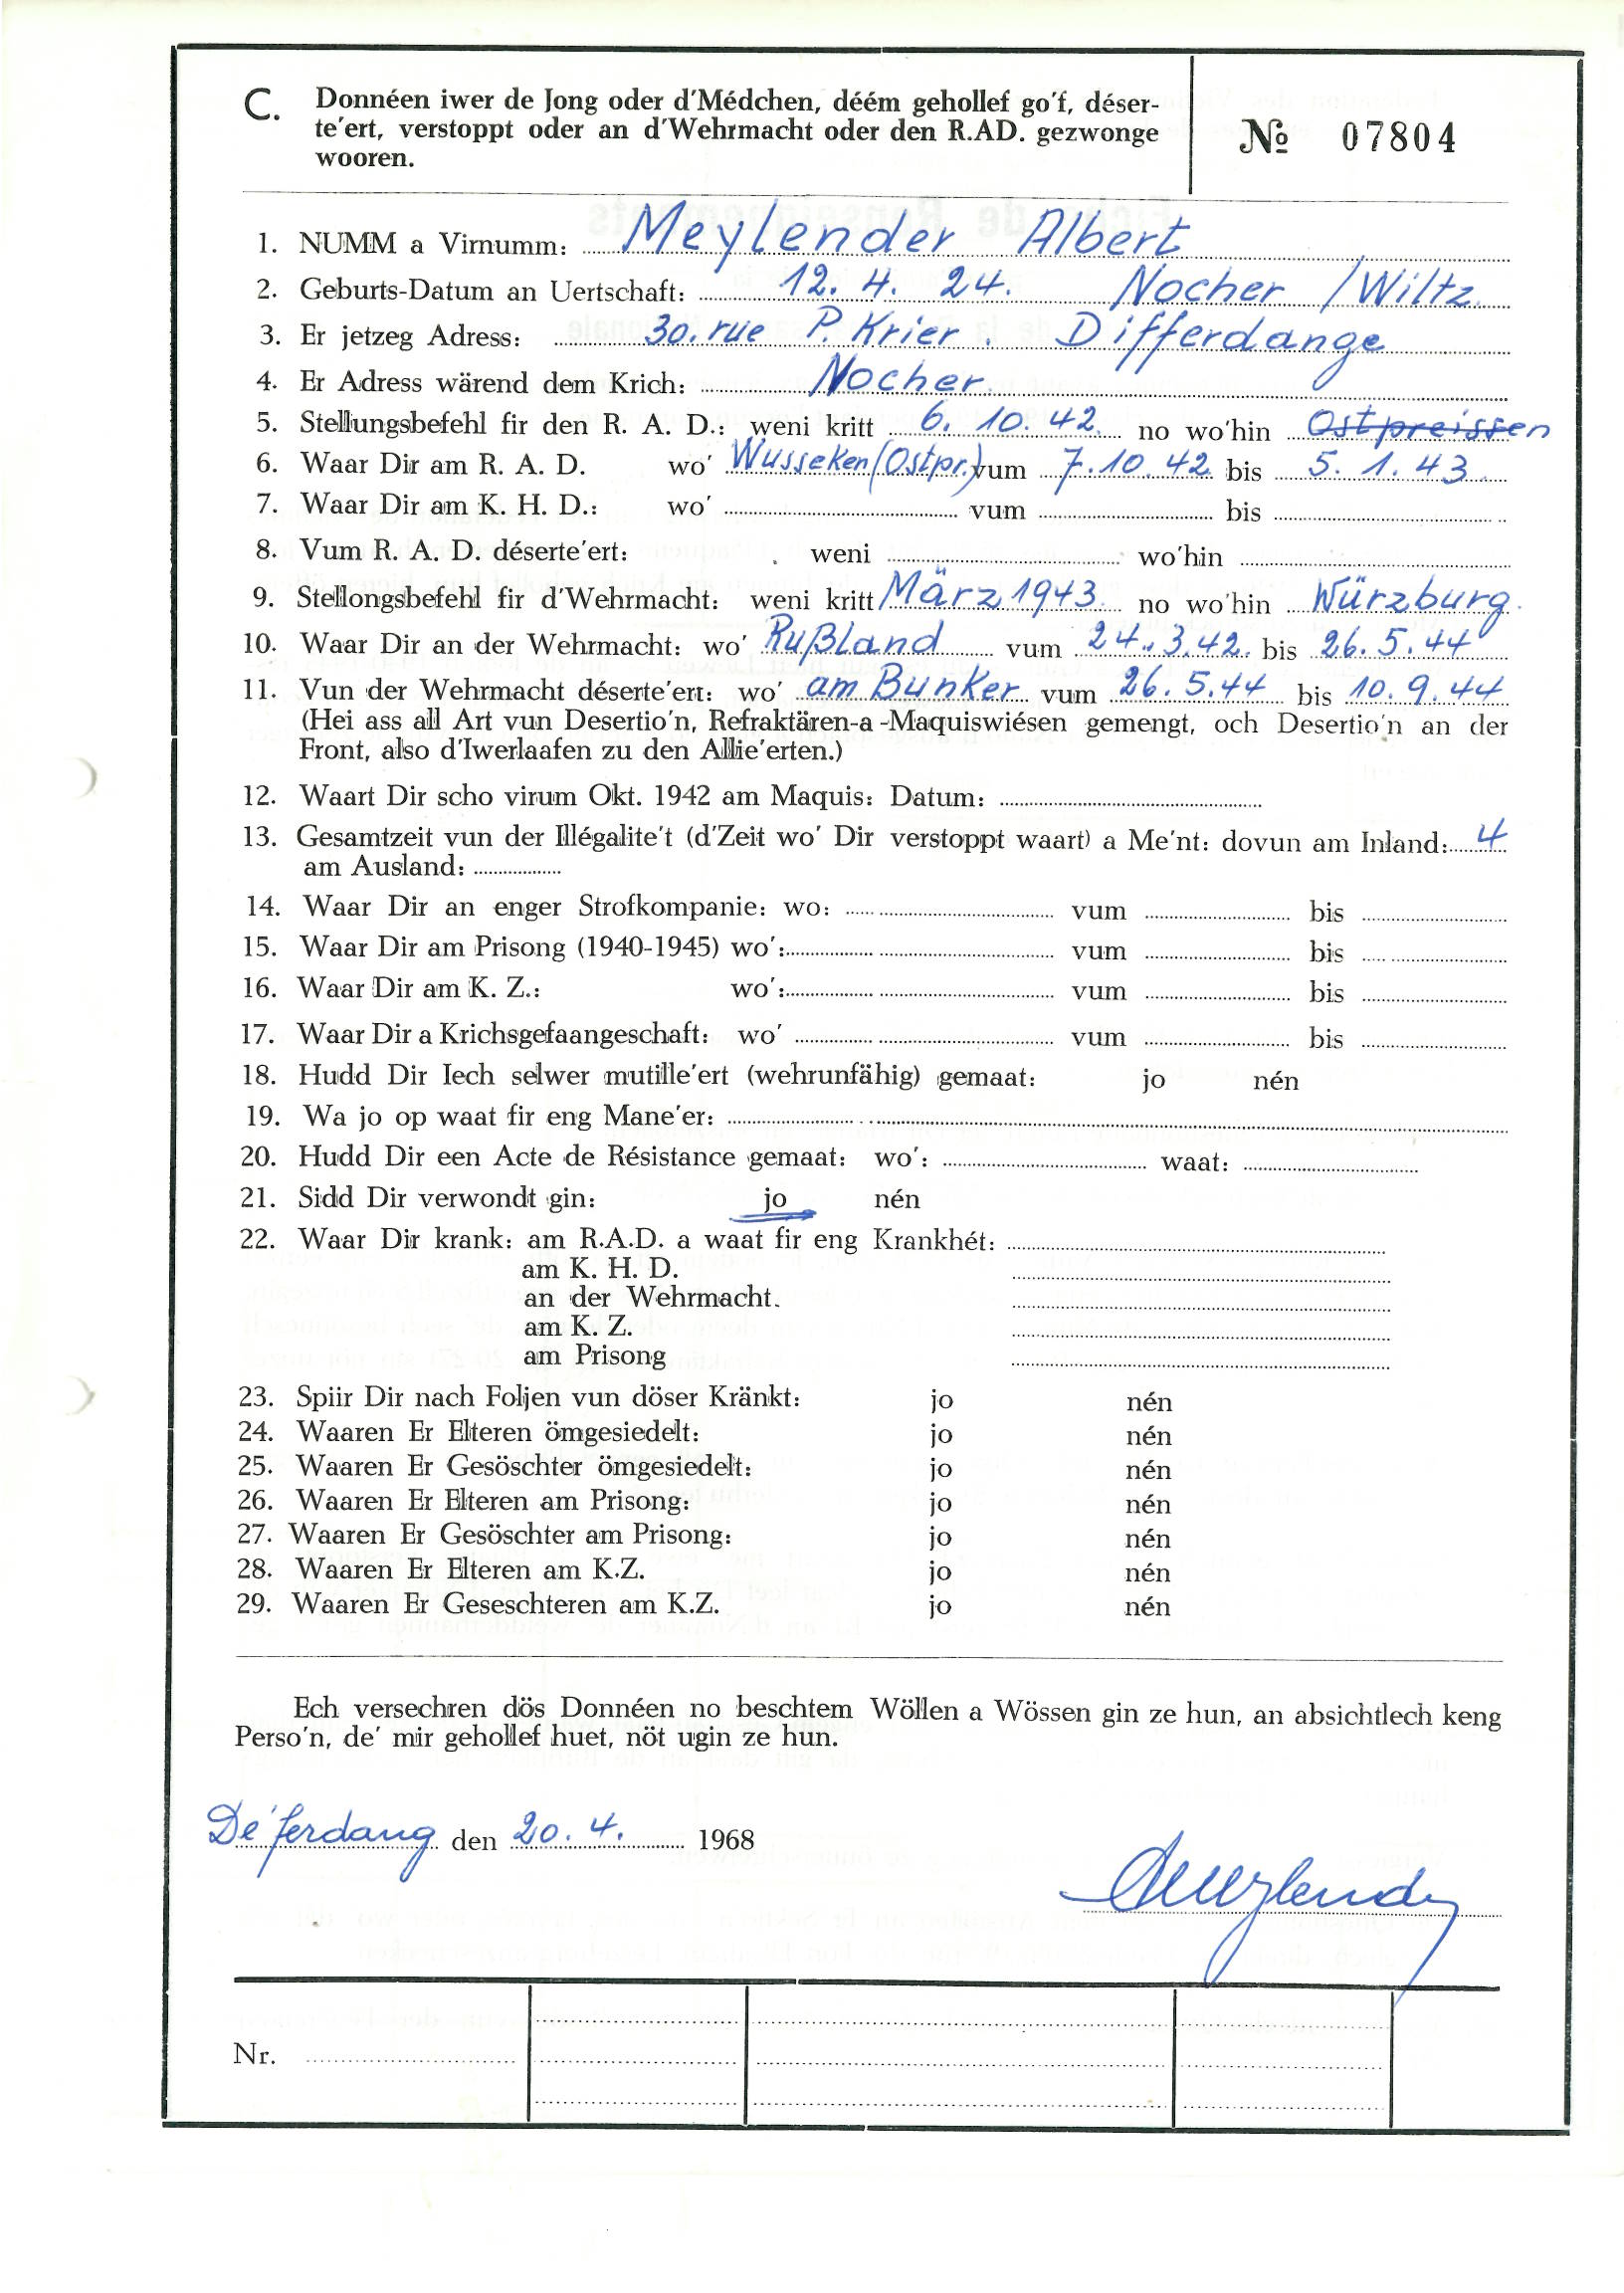 C. Donnéen iwer de Jong oder d'Médchen, déém gehollef go'f, déser-
te'ert, verstoppt oder an d'Wehrmacht oder den R.AD. gezwonge
wooren.
№ 07804
1. NUMM a Virnumm: Meylender Albert
2. Geburts-Datum an Uertschaft: 12. 4. 24. Nocher / Wiltz
3. Er jetzeg Adress: 30. rue P. Krier. Differdange
4. Er Adress wärend dem Krich: Nocher
5. Stellungsbefehl fir den R. A. D.: weni kritt 6. 10. 42. no wo'hin Ostpreissen
6. Waar Dir am R. A. D. wo' Wusseken (Ostpr.) vum 7.10.42 bis 5. 1. 43.
7. Waar Dir am K. H. D.: wo' vum bis
8. Vum R. A. D. déserte'ert: weni wo'hin
9. Stellongsbefehl fir d'Wehrmacht: weni kritt März 1943. no wo'hin Würzburg.
10. Waar Dir an der Wehrmacht: wo' Rußland vum 24.3.42. bis 26.5.44
11. Vun der Wehrmacht déserte'ert: wo' am Bunker vum 26.5.44 bis 10.9.44
(Hei ass all Art vun Desertio'n, Refraktären-a-Maquiswiésen gemengt, och Desertio'n an der
Front, also d'Iwerlaafen zu den Allie'erten.)
12. Waart Dir scho virum Okt. 1942 am Maquis: Datum:
13. Gesamtzeit vun der Illégalite't (d'Zeit wo' Dir verstoppt waart) a Me'nt: dovun am Inland: 4
am Ausland:
14. Waar Dir an enger Strofkompanie: wo: vum bis
15. Waar Dir am Prisong (1940-1945) wo': vum bis
16. Waar Dir am K. Z.: wo': vum bis
17. Waar Dir a Krichsgefaangeschaft: wo' vum bis
18. Hudd Dir Iech selwer mutille'ert (wehrunfähig) gemaat: jo nén
19. Wa jo op waat fir eng Mane'er:
20. Hudd Dir een Acte de Résistance gemaat: wo': waat:
21. Sidd Dir verwondt gin: jo nén
22. Waar Dir krank: am R.A.D. a waat fir eng Krankhét:
am K. H. D.
an der Wehrmacht.
am K. Z.
am Prisong
23. Spiir Dir nach Foljen vun döser Kränkt: jo nén
24. Waaren Er Elteren ömgesiedelt: jo nén
25. Waaren Er Gesöschter ömgesiedelt: jo nén
26. Waaren Er Elteren am Prisong: jo nén
27. Waaren Er Gesöschter am Prisong: jo nén
28. Waaren Er Elteren am K.Z. jo nén
29. Waaren Er Geseschteren am K.Z. jo nén
Ech versechren dös Donnéen no beschtem Wöllen a Wössen gin ze hun, an absichtlech keng
Perso'n, de' mir gehollef huet, nöt ugin ze hun.
De'ferdang den 20. 4. 1968
AMeylender
Nr.